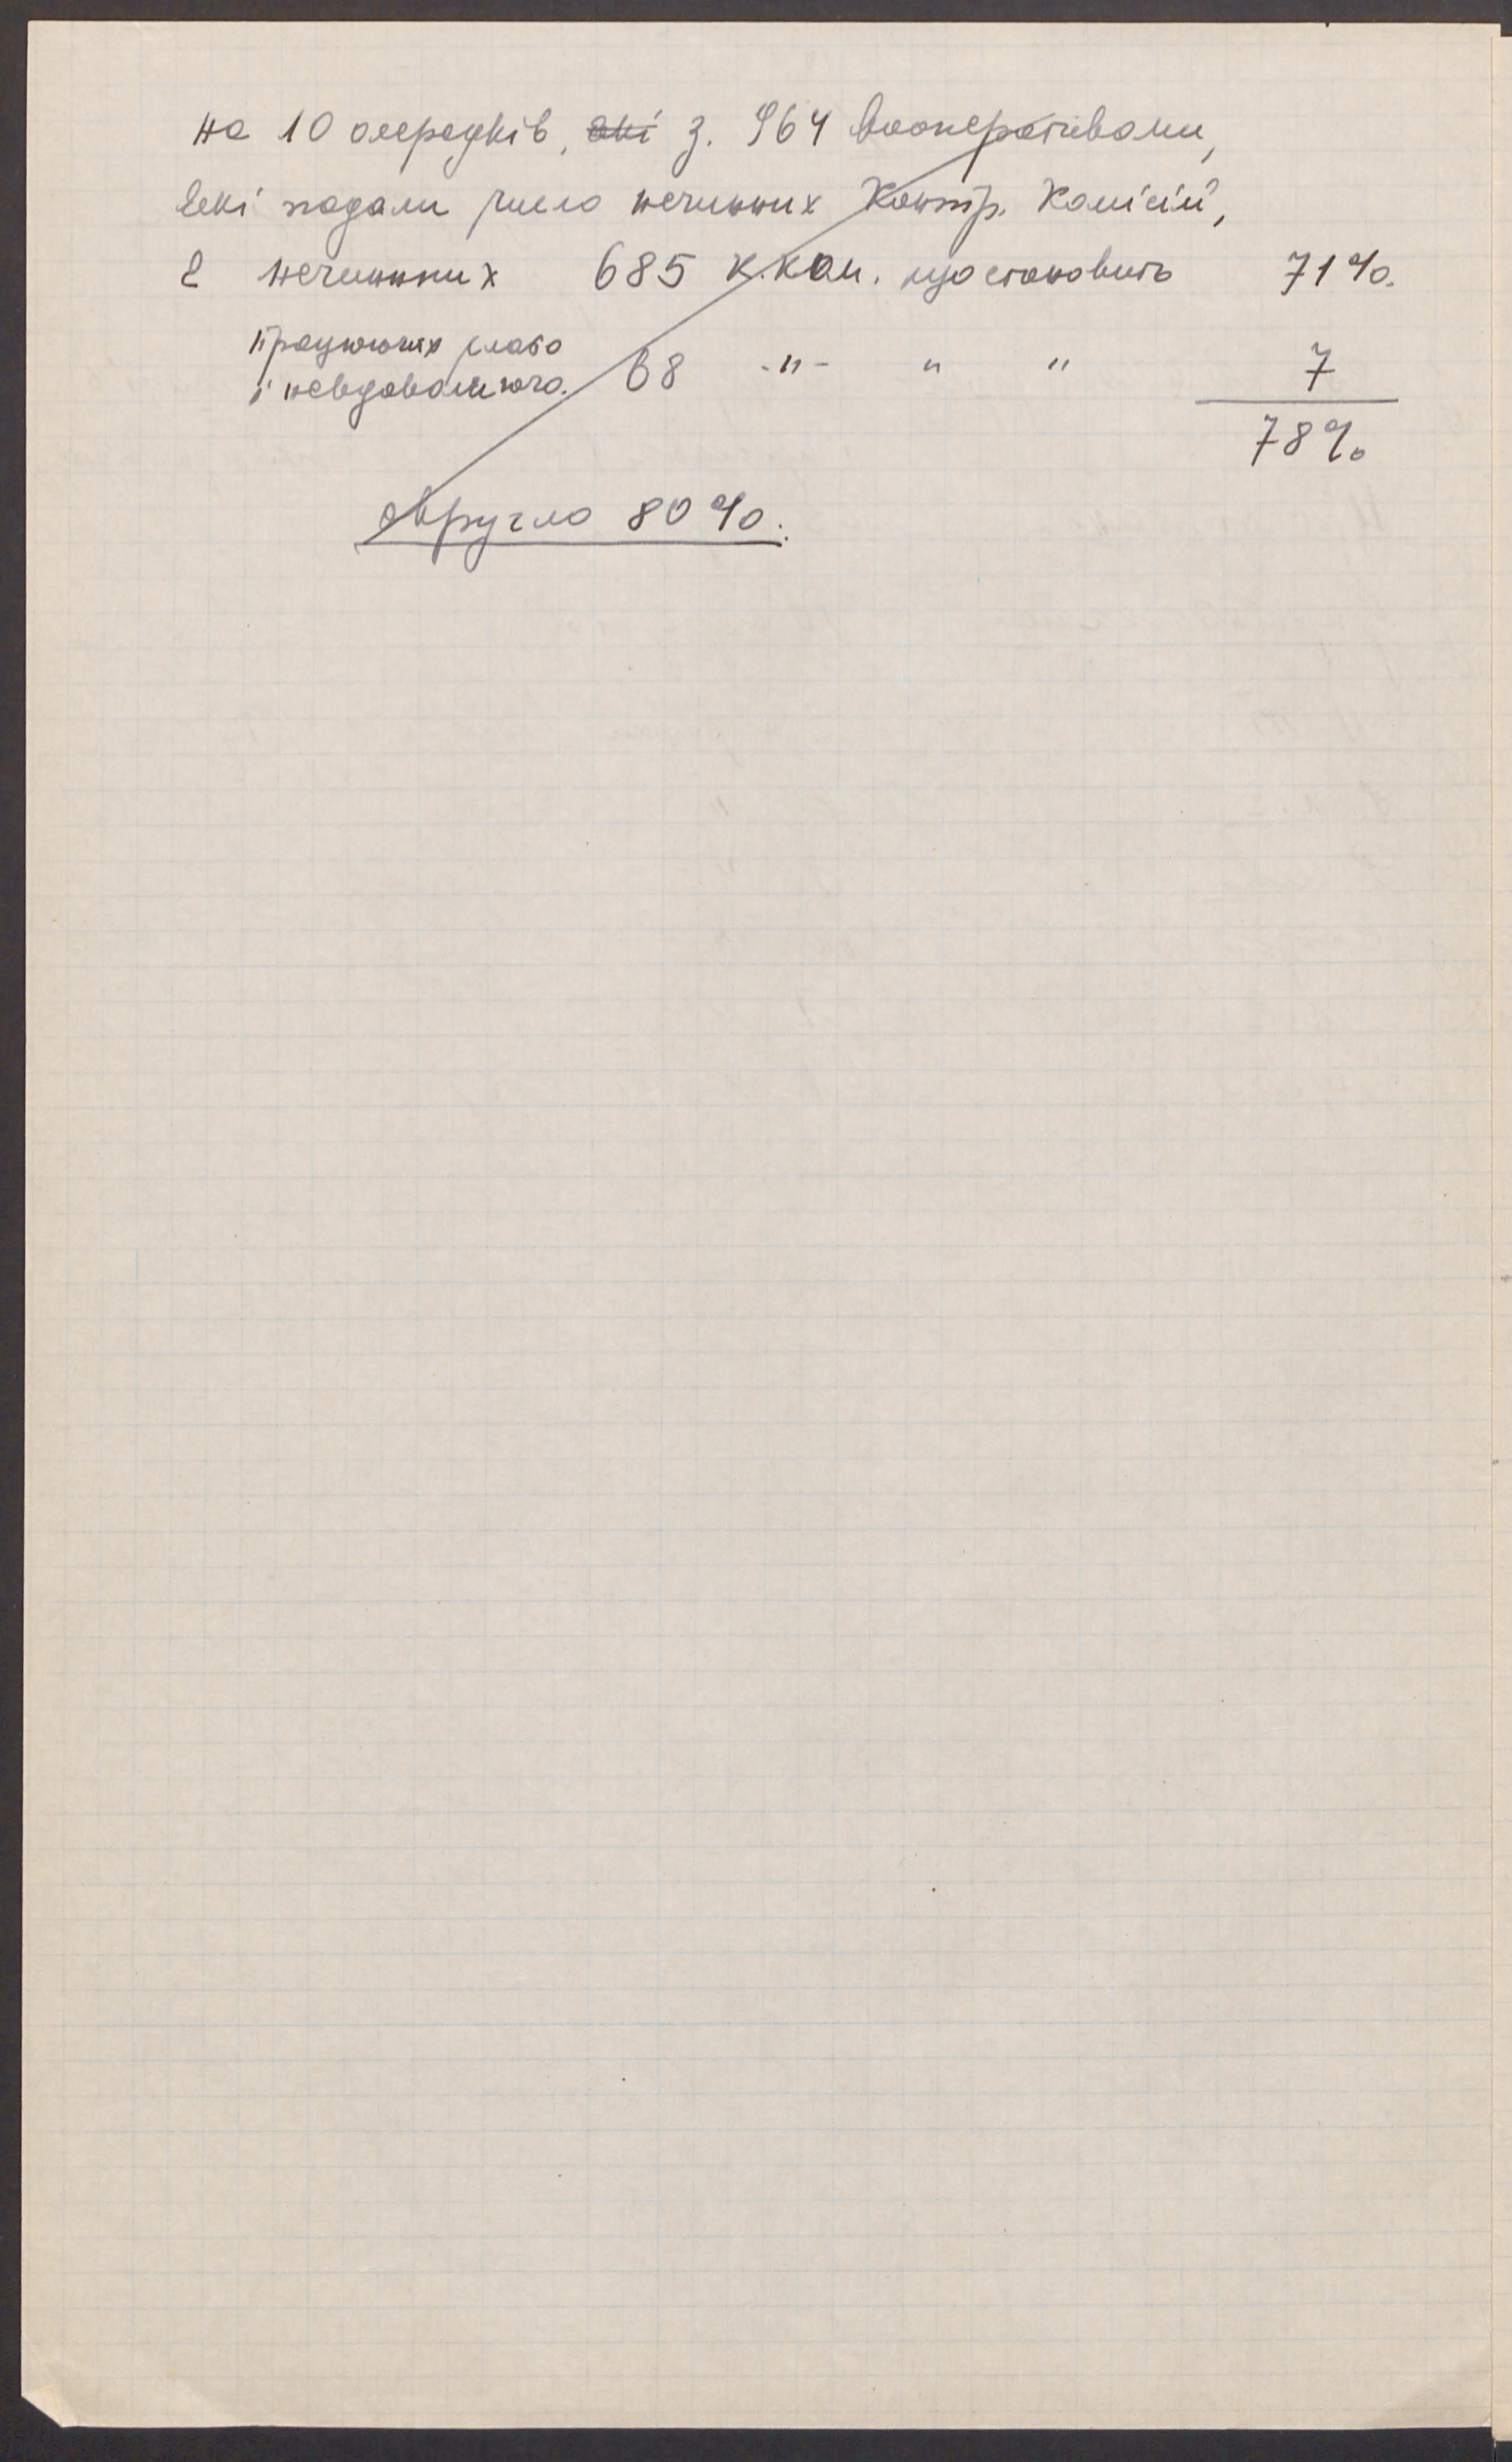 на 10 осередків, які з. 964 кооперативами,
які подали число нечинних Контр. Комісій,
є нечинних 685 к.ком. що становить 71%.
працюючих слабо
і невдоволяюче. 68 -"- " " 7
78%
округло 80%.